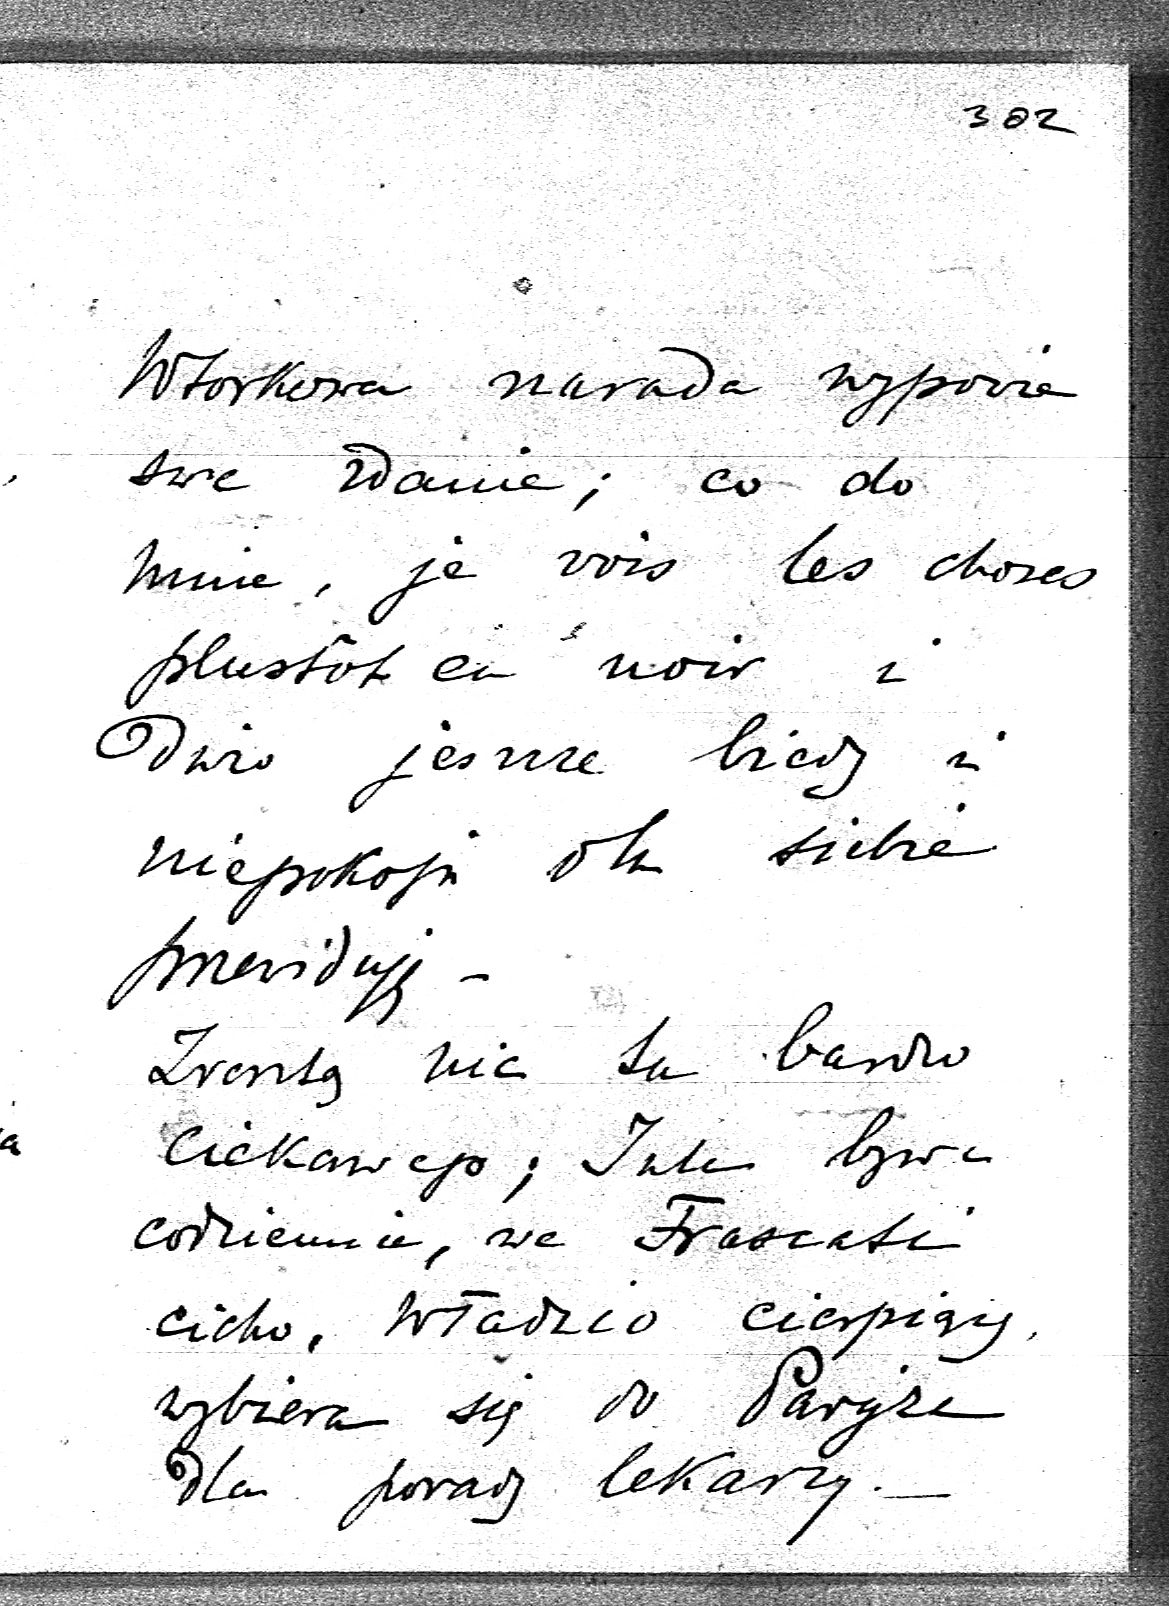 302
Wtorkowa narada wypowie
swe zdanie; co do
mnie, je vois les choses
plustôt en noir i
dużo jeszcze biedy i
niepokoju dla siebie
przewiduję –
Zresztą nic tu bardzo
ciekawego; Jula bywa
codziennie, we Frascati
cicho, Władzio cierpiący,
wybiera się do Paryża
dla porady lekarzy. —